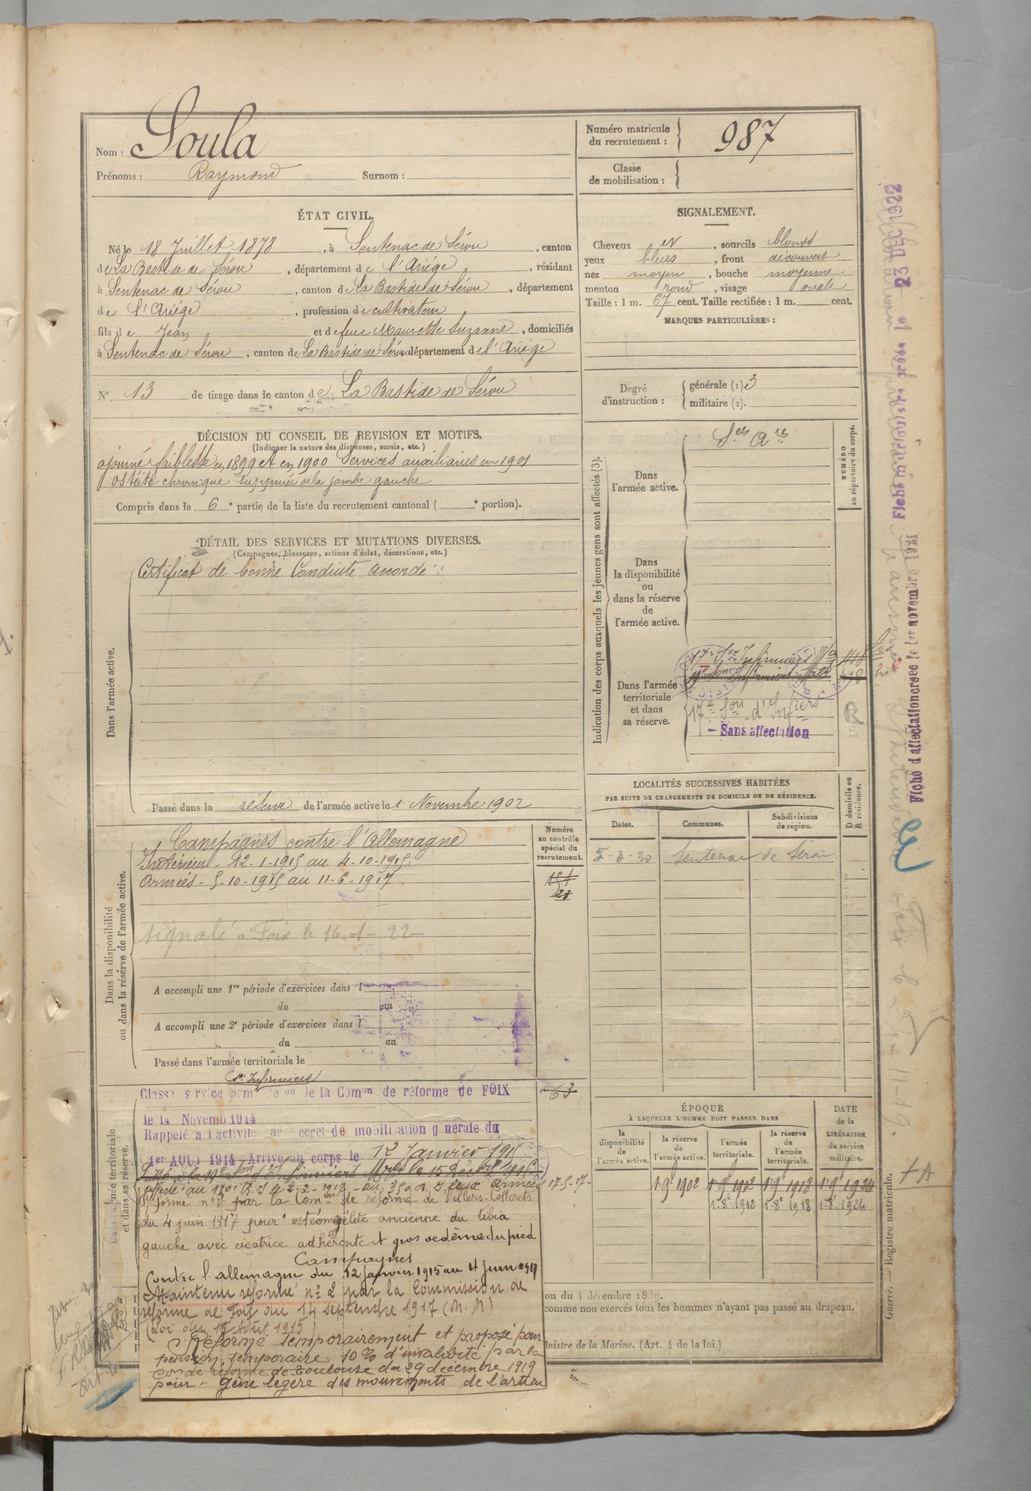 Nom : Soula
Prénoms : Raymond Surnom :
Numéro matricule du recrutement : 987
Classe de mobilisation :
ÉTAT CIVIL.
Né le 18 Juillet 1878, à Sentenac de Sérou, canton
de La Bastide de Sérou, département de l'Ariége, résidant
à Sentenac de Sérou, canton de La Bastide de Sérou, département
de l'Ariége, profession de cultivateur
fils de Jean et de feue Maurette Suzanne, domiciliés
à Sentenac de Sérou, canton de La Bastide de Sérou, département de l'Ariége
N° 13 de tirage dans le canton de La Bastide de Sérou
SIGNALEMENT.
Cheveux et, sourcils blonds
yeux bleus, front découvert
nez moyen, bouche moyenne
menton rond, visage ovale
Taille : 1 m. 67 cent. Taille rectifiée : 1 m. cent.
MARQUES PARTICULIÈRES :
Degré d'instruction : générale (1) 3
militaire (2).
DÉCISION DU CONSEIL DE REVISION ET MOTIFS.
(Indiquer la nature des dispenses, sursis, etc.)
ajourné faiblesse en 1899 et en 1900 Services auxiliaires en 1901
Ostéite chronique suppurée de la jambe gauche
Compris dans la 6e partie de la liste du recrutement cantonal ( e portion).
DÉTAIL DES SERVICES ET MUTATIONS DIVERSES.
(Campagnes, blessures, actions d'éclat, décorations, etc.)
Dans l'armée active.
Certificat de bonne Conduite accordé
Passé dans la réserve de l'armée active le 1 Novembre 1902
Indication des corps auxquels les jeunes gens sont affectés (3).
Dans l'armée active.
Ses Ares
NUMÉRO au répertoire du corps.
Dans la disponibilité ou dans la réserve de l'armée active.
Dans l'armée territoriale et dans sa réserve.
17e Son d'Infiers
- Sans affectation
LOCALITÉS SUCCESSIVES HABITÉES
PAR SUITE DE CHANGEMENTS DE DOMICILE OU DE RÉSIDENCE.
Dates. Communes. Subdivisions de région. D domicile ou R résidence.
Sentenac de Sérou
Dans la disponibilité ou dans la réserve de l'armée active.
Numéro au contrôle spécial du recrutement.
Campagnes contre l'Allemagne
Intérieur - 12-1-1915 au 4-10-1915
Armées - 5-10-1915 au 11-6-1917
Signalé à Foix le 16-1-22
A accompli une 1re période d'exercices dans l
du au
A accompli une 2e période d'exercices dans l
du au
Passé dans l'armée territoriale le
Dans l'armée territoriale et dans sa réserve.
de la Comon de réforme de FOIX
le 14 Novemb 1914
Rappelé à l'activité décret de mobilisation générale du
1er AOUT 1914 - Arrivé au corps le 12 Janvier 1915
Réformé n° 2 par la Comon de réforme de Villers-Cotterets
du 4 juin 1917 pour "ostéomyélite ancienne du tibia
gauche avec cicatrice adhérente et gros oedème du pied
Campagnes
Contre l'allemagne du 12 janvier 1915 au 4 juin 1917
Maintenu réformé n° 2 par la Commission de
réforme de Foix du 14 septembre 1917 (M.N)
(Loi du 15 Août 1915)
Réformé temporairement et proposé pour
pension temporaire 10 % d'invalidité par la
Con de réforme de Toulouse du 29 décembre 1919
pour "gêne légère des mouvements de l'articu
ÉPOQUE
À LAQUELLE L'HOMME DOIT PASSER DANS
la disponibilité de l'armée active. la réserve de l'armée active. l'armée territoriale. la réserve de l'armée territoriale. DATE DE LA LIBÉRATION du service militaire.
1 9e 1902 1 9e 1912 1 9e 1918 1 9e 1924
1-8e 1912 1-8e 1918 1-8e 1924
on du 4 décembre 1889.
comme non exercés tous les hommes n'ayant pas passé au drapeau.
Ministre de la Marine. (Art. 4 de la loi.)
Guerre. — Registre matricule.
Fiche d'affectation créée le 1er novembre 1921
Fiche matriculaire créée le 23 DEC 1922